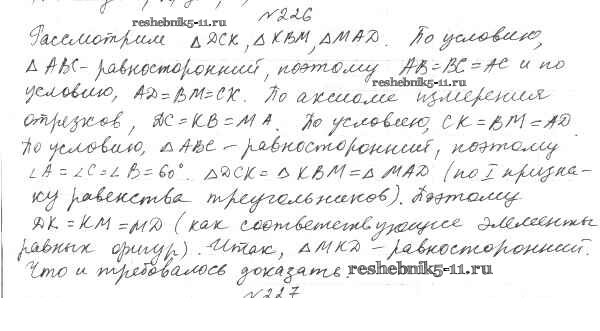 №226
reshebnik5-11.ru
Рассмотрим △ DCK, △ KBM, △ MAD. По условию,
△ ABC - равносторонний, поэтому AB=BC=AC и по
reshebnik5-11.ru
условию, AD=BM=CK. По аксиоме измерения
отрезков, DC=KB=MA. По условию, CK=BM=AD.
По условию, △ ABC - равносторонний, поэтому
∠A=∠C=∠B=60°. △DCK=△KBM=△MAD (по I призна-
ку равенства треугольников). Поэтому
DK=KM=MD (как соответствующие элементы
равных фигур). Итак, △MKD - равносторонний.
Что и требовалось доказать.
reshebnik5-11.ru
№227